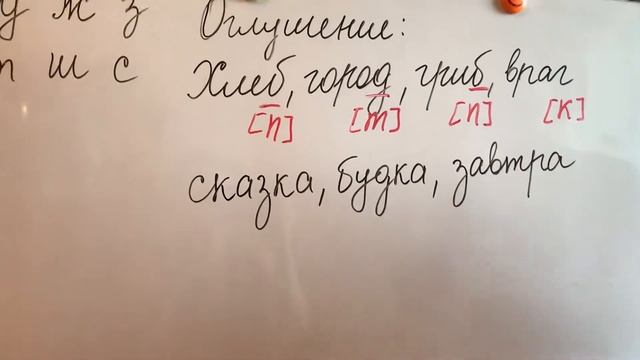 д ж з Оглушение:
т ш с Хлеб, город, гриб, враг
[п] [т] [п] [к]
сказка, будка, завтра